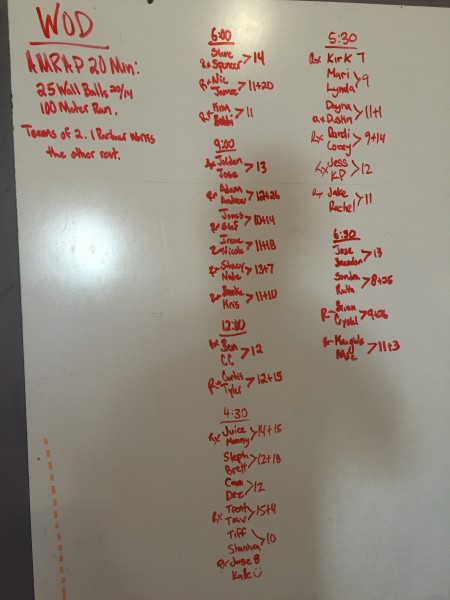 WOD
AMRAP 20 Min:
25 Wall Balls 20/14
100 Meter Run.
Teams of 2. 1 Partner Works
the other rest.
6:00
Steve
Rx Spencer >14
Rx Nic
>11+20
Rx Kim
Bobbi >11
9:00
Rx Jordan
Jose >13
Rx Adam
Andrew >12+26
Jones
>10+14
Irene
Rx Nicole >11+18
Rx
Nate >13+7
Rx
Kris >11+10
12:00
Rx Ben
CC >12
Rx Curtis
Tyler >12+15
4:30
Rx Juice
Manny >14+15
Steph
Brett >12+18
Cam
Dez >12
Trent
Rx >15+4
Tiff
Shannon >10
Rx Jose 8
Kale
5:30
Rx Kirk 7
Mari
Lynda >9
Dayna
Dustin >11+1
Rx Randi
Corey >9+14
Rx Jess
KP >12
Rx Jake
Rachel >11
6:30
Jose
Brandon >13
Sandra
Ruth >8+25
Rx Brian
Crystal >9+26
Rx Knights
>11+3